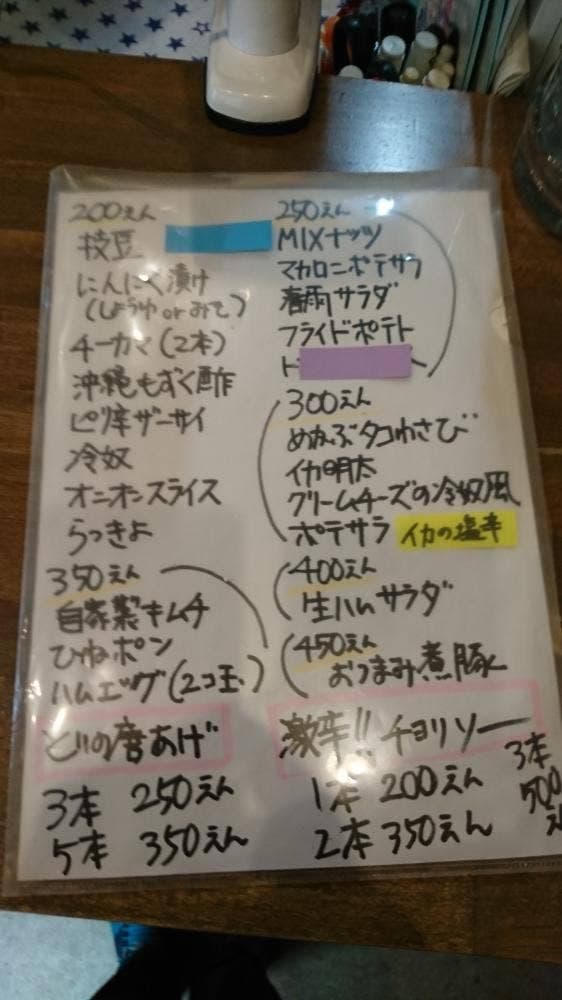 200えん
枝豆
にんにく漬け
(しょうゆ or みそ)
チーカマ(2本)
沖縄もずく酢
ピリ辛ザーサイ
冷奴
オニオンスライス
らっきょ
350えん
自家製キムチ
ひねポン
ハムエッグ(2コ玉)
どりの唐あげ
3本 250えん
5本 350えん
250えん
MIXナッツ
マカロニポテサラ
春雨サラダ
フライドポテト
300えん
めかぶタコわさび
イカ明太
クリームチーズの冷奴風
ポテサラ イカの塩辛
400えん
生ハムサラダ
450えん
おつまみ煮豚
激辛!! チョリソー
1本 200えん
2本 350えん
3本
500
え